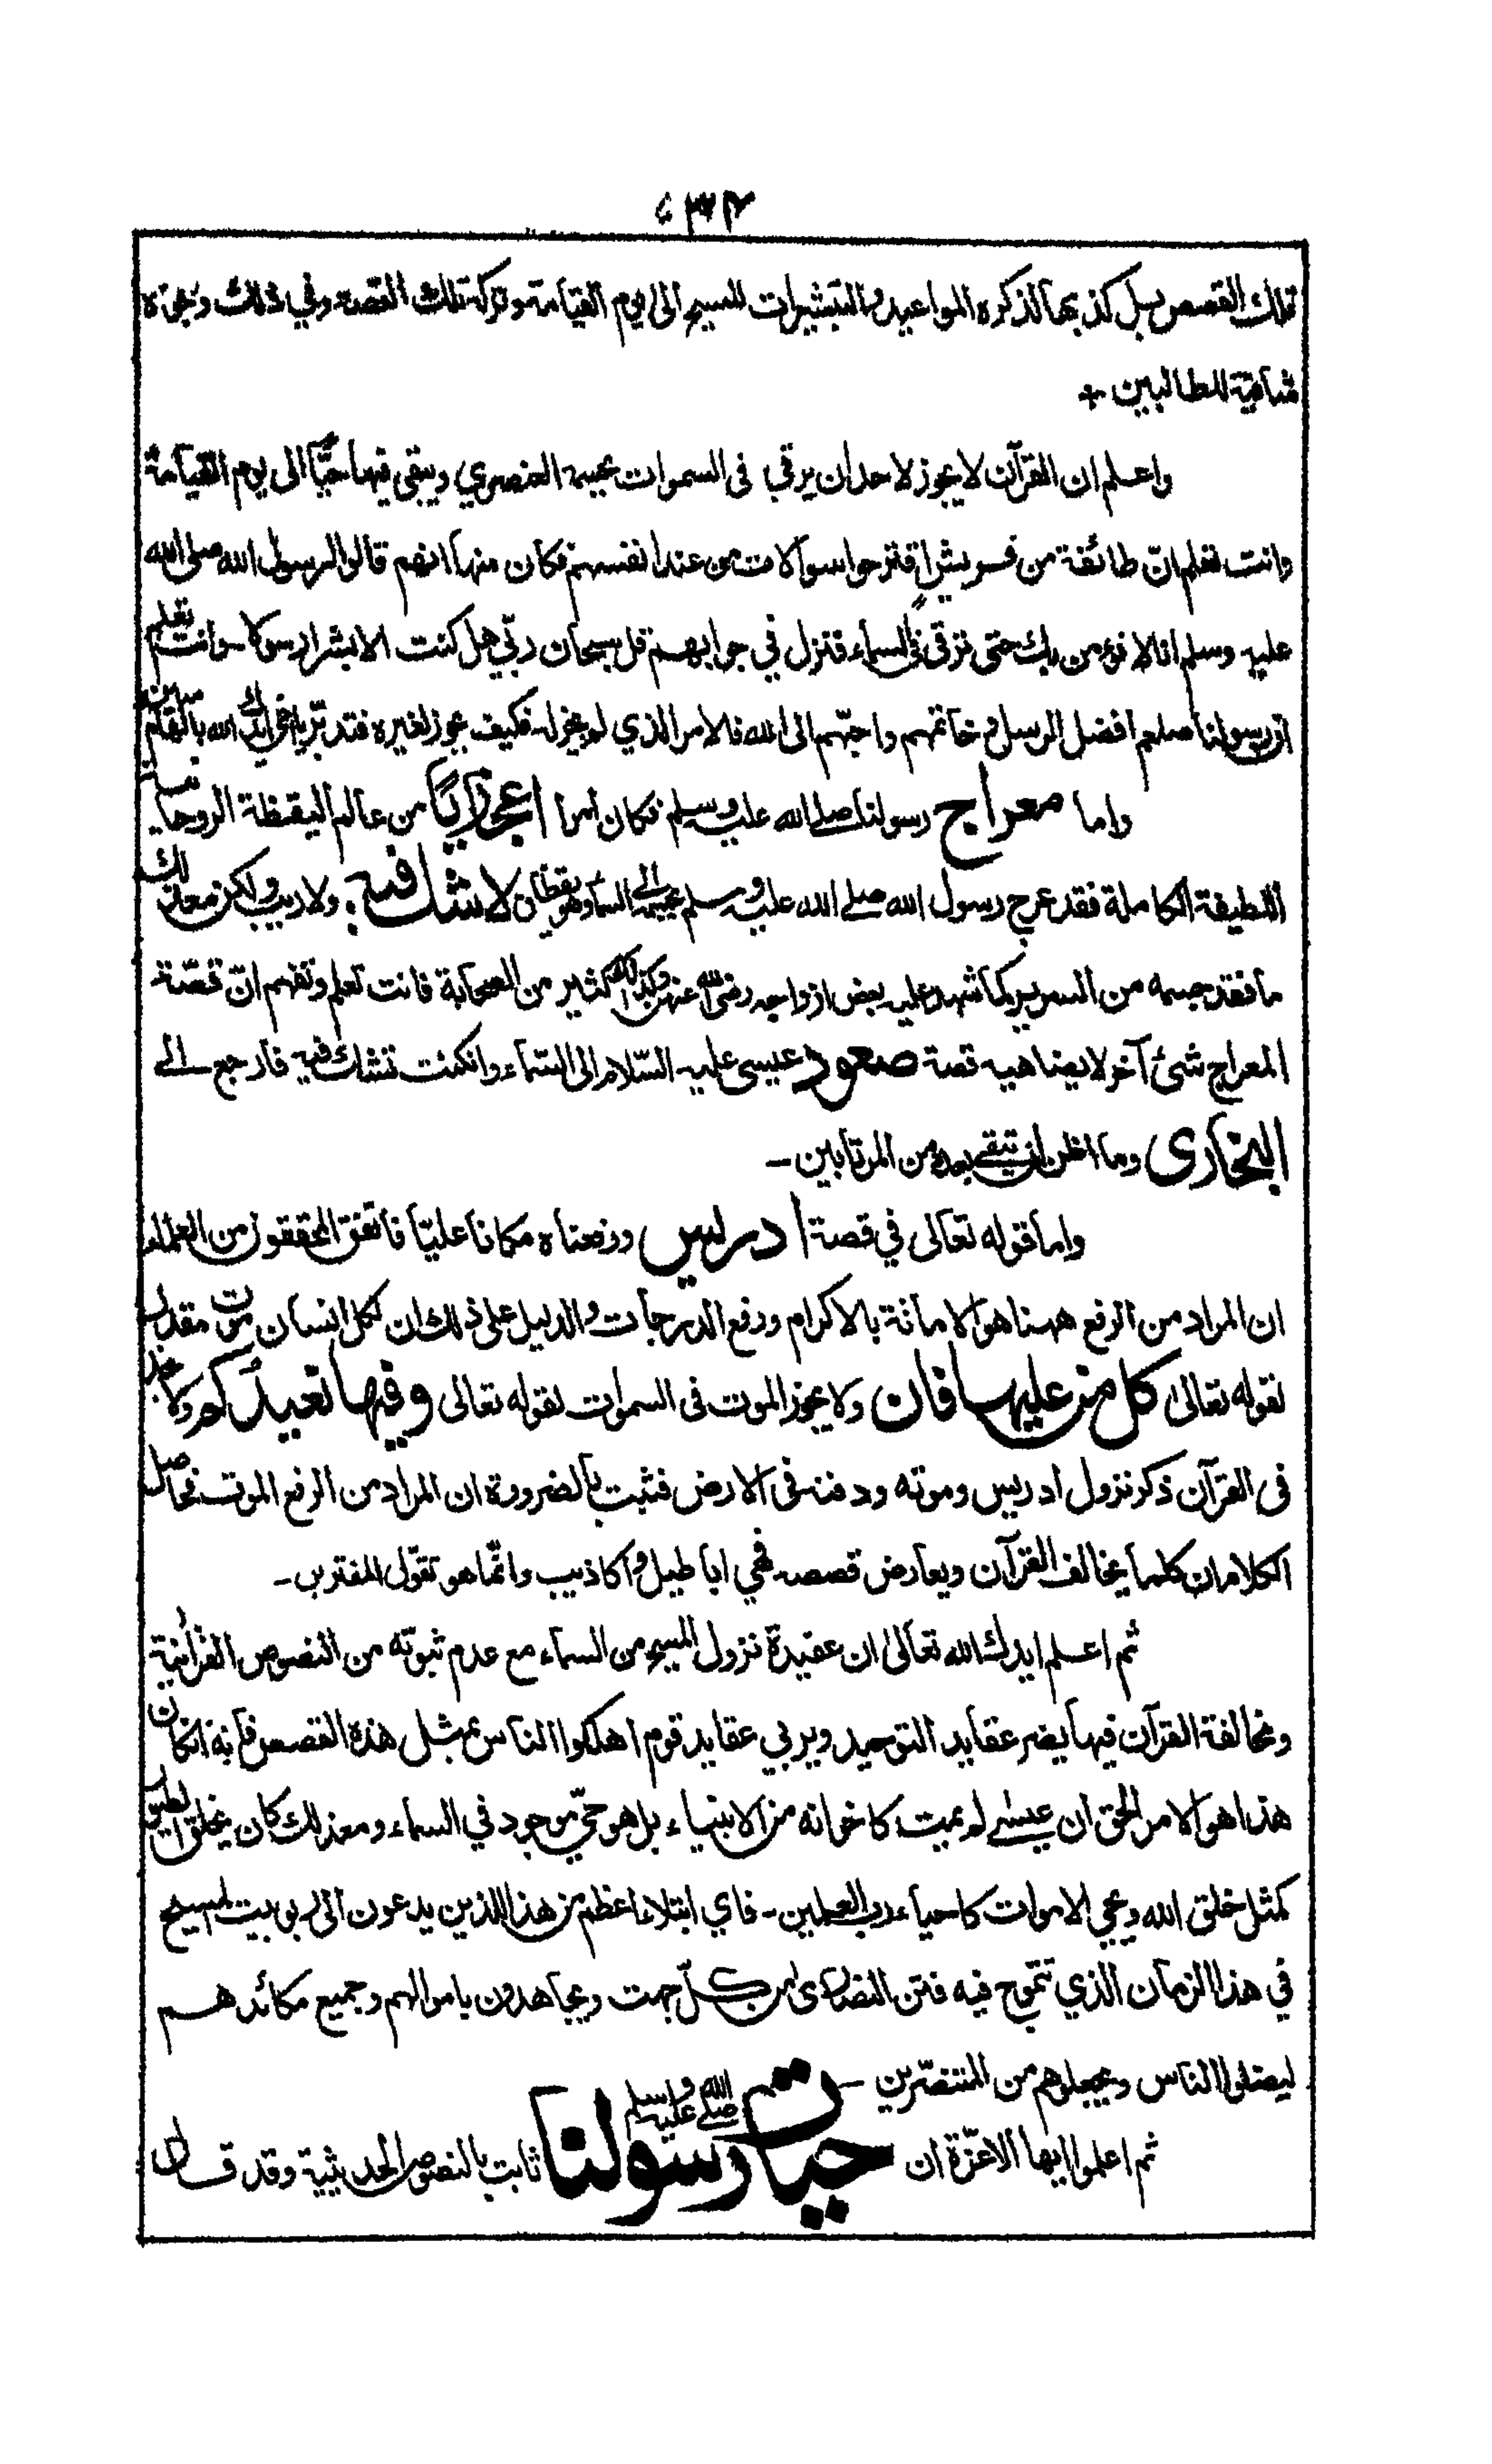 ٣٣
تلك القصص بل كذبها لذكره المواعيد والتبشيرات للمسيح الى يوم القيامة وتركه تلك القصة وفي ذلك وجوه
شافية للطالبين +
واعلم ان القرآن لا يجوز لاحد ان يرقى فى السموات بجسمه العنصري ويبقى فيها حيًّا الى يوم القيامة
وانت تعلم انّ طائفة من قريش اقترحوا سوالات من عند انفسهم فكان منها انهم قالوا لرسول الله صلى الله
عليه وسلم انا لا نؤمن بك حتى ترقى فى السماء فنزل في جوابهم قل سبحان ربّي هل كنت الا بشرا رسولا وانت تعلم
ان رسولنا صلعم افضل الرسل وخاتمهم واحبّهم الى الله فالامر الذي لم يجز له فكيف يجوز لغيره فتدبّر يا اخي ايدك الله بالهام مبين
واما معراج رسولنا صلے الله عليه وسلم فكان امرا اعجازيًّا من عالم اليقظة الروحانية
اللطيفة الكاملة فقد عرج رسول الله صلے الله عليه وسلم بجسمه الى السماء وهو يقظان لا شك فيه ولا ريب ولكن مع ذلك
ما فقد جسمه من السرير كما شهد عليه بعض ازواجه رضي الله عنهن وكذلك كثير من الصحابة فانت تعلم وتفهم انّ قصّة
المعراج شئ آخر لا يضاهيه قصة صعود عيسى عليه السّلام الى السّماء وانكنت تشك فيه فارجع الے
البخارى وما اظن ان تبقے بعده من المرتابين ـ
واما قوله تعالى في قصة ادريس ورفعناه مكانا عليّا فاتفق المحققون من العلماء
ان المراد من الرفع ههنا هو الاماتة بالاكرام ورفع الدرجات والدليل على ذلك ان لكل انسان موت مقدر
لقوله تعالى كل من عليها فان ولا يجوز الموت فى السموات لقوله تعالى وفيها نعيدكم ولا نجد
فى القرآن ذكر نزول ادريس وموته ودفنه فى الارض فثبت بالضرورة ان المراد من الرفع الموت فحاصل
الكلام ان كلما يخالف القرآن ويعارض قصصه فهي اباطيل واكاذيب وانّما هو تقوّل المفترين ـ
ثم اعلم ايدك الله تعالى ان عقيدة نزول المسيح من السماء مع عدم ثبوته من النصوص القرآنية
ومخالفة القرآن فيها يضر عقايد التوحيد ويربي عقايد قوم اهلكوا الناس بمثل هذه القصص فانه انكان
هذا هو الامر الحق ان عيسٰے لم يمت كاخوانه من الانبياء بل هو حيّ موجود في السماء ومع ذلك كان يخلق الطيور
كمثل خلق الله ويحيى الاموات كاحياء رب العلمين ـ فاي ابتلاء اعظم من هذا للذين يدعون الى ربوبيت المسيح
في هذا الزمان الذي تتموج فيه فتن النصارى من كل جهت ويجاهدون باموالهم وجميع مكائدهم
ليضلوا الناس ويجعلوهم من المتنصّرين ـ
ثم اعلموا ايها الاعزّة ان حيات رسولنا صلى الله عليه وسلم ثابت بالنصوص الحديثية وقد قال